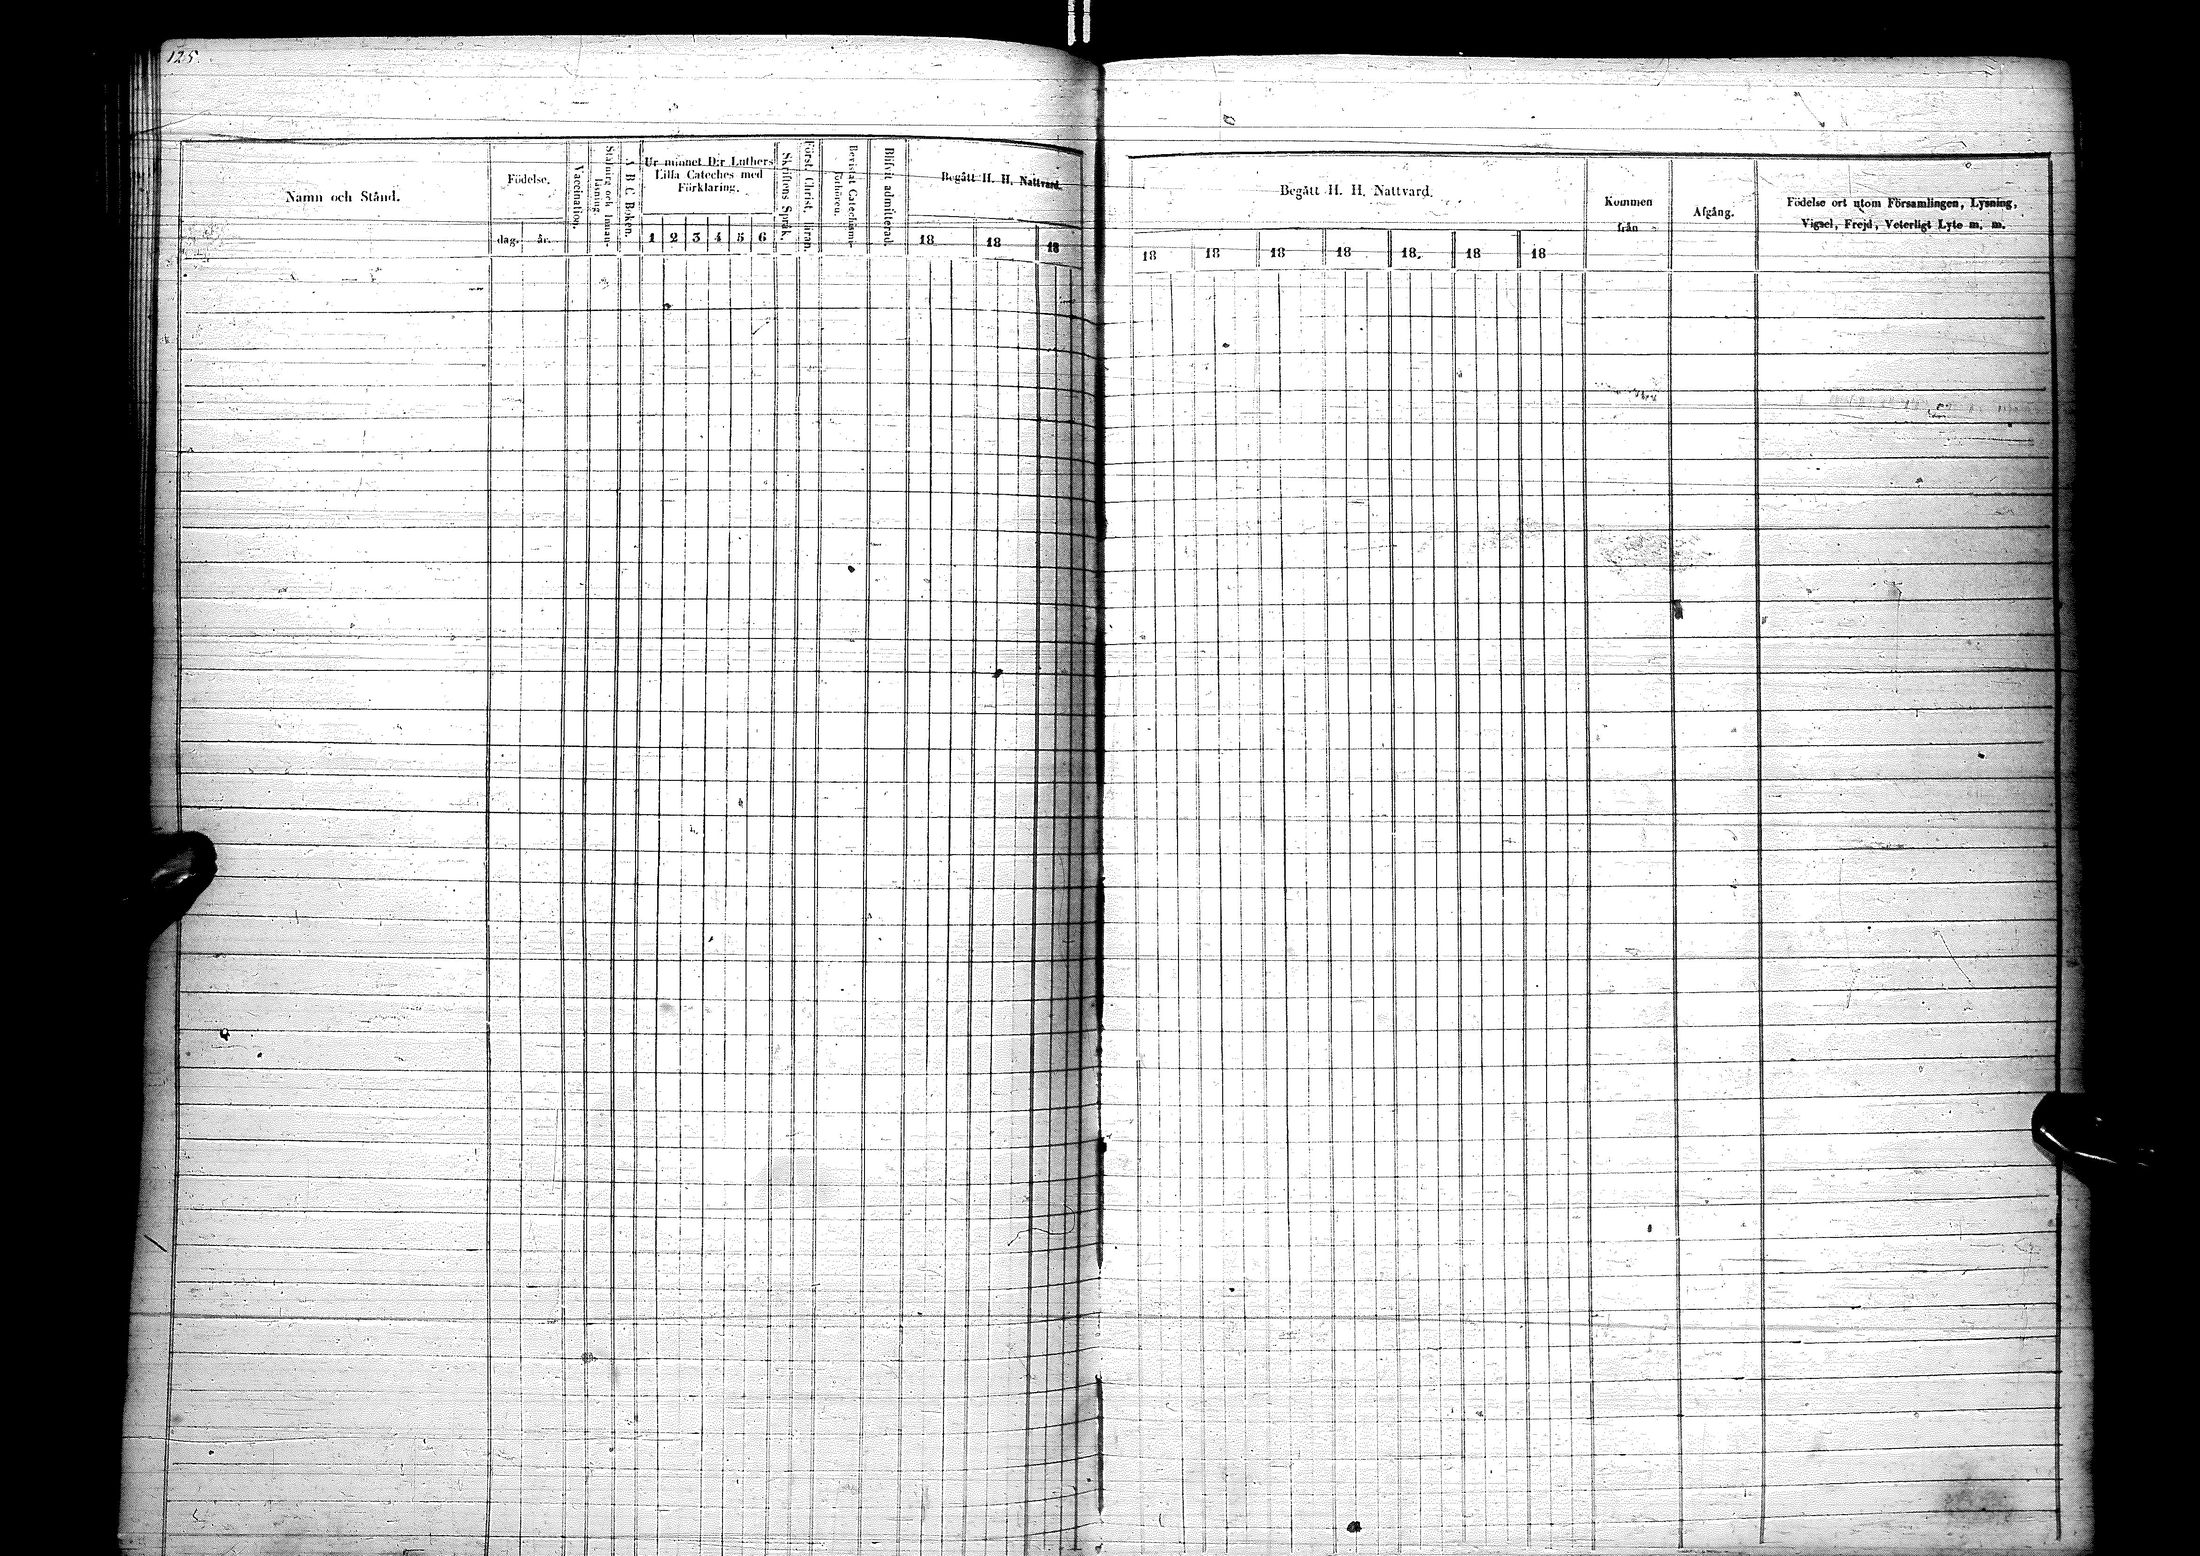 125.
Namn och Stånd.
Födelse.
dag.
år.
Vaccination.
Stafning och Innan-
läsning.
A B C. Boken.
Ur minnet D:r Luthers
Lilla Cateches med
Förklaring.
1 2 3 4 5 6
Skriftens Språk.
Förståt Christ. läran.
Bevistat Catechismi-
förhören.
Blifvit admitterad.
Begått H. H. Nattvard.
18 18 18
Begått H. H. Nattvard.
18 18 18 18 18. 18 18
Kommen
från
Afgång.
Födelse ort utom Församlingen, Lysning,
Vigsel, Frejd, Veterligt Lyte m. m.